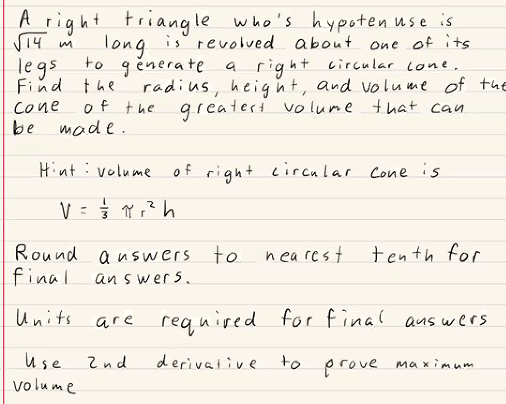 A right triangle who's hypotenuse is
√14 m long is revolved about one of its
legs to generate a right circular cone.
Find the radius, height, and volume of the
cone of the greatest volume that can
be made.
Hint: volume of right circular cone is
V = 1/3 π r² h
Round answers to nearest tenth for
final answers.
Units are required for final answers
Use 2nd derivative to prove maximum
volume